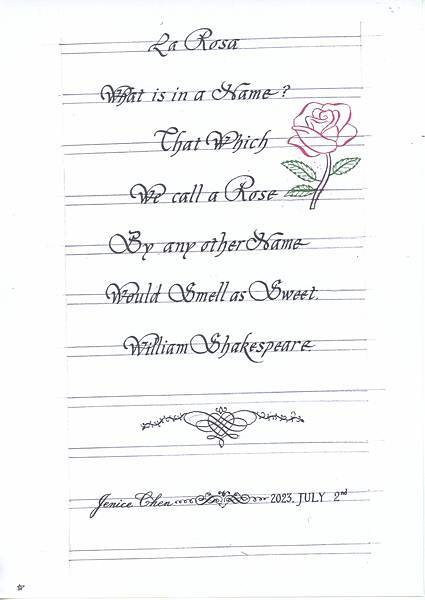 La Rosa
What is in a Name?
That Which
We call a Rose
By any other Name
Would Smell as Sweet.
William Shakespeare.
Jenice Chen 2023. JULY 2nd